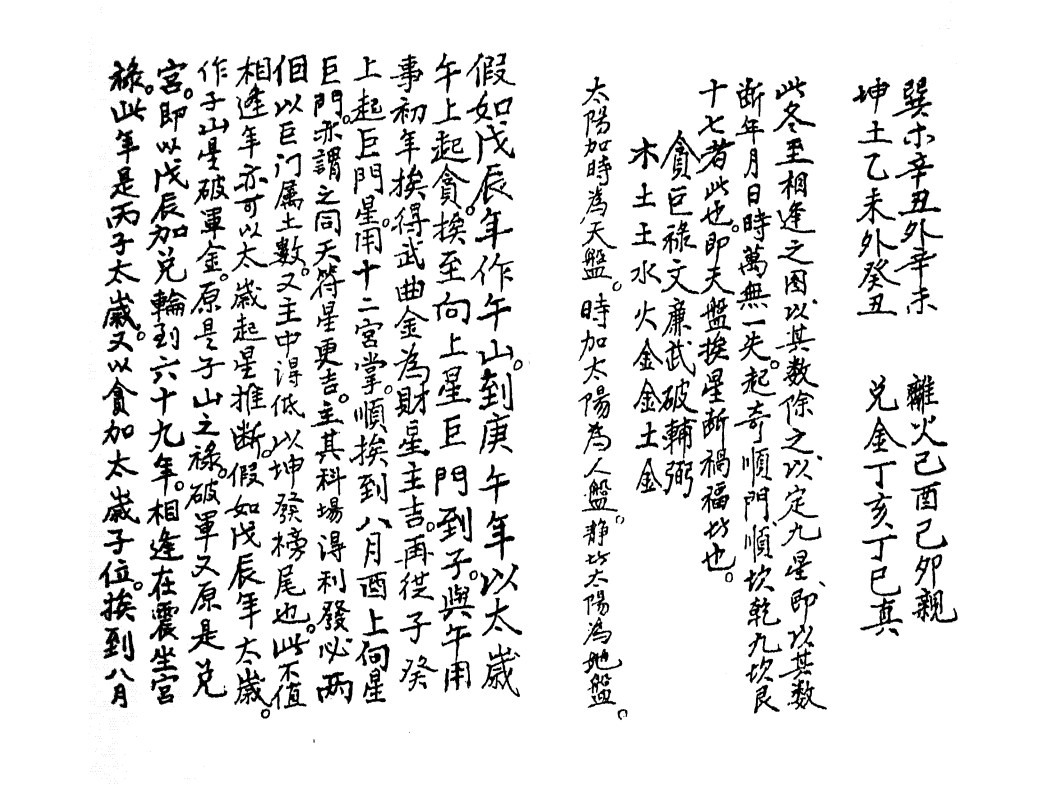 巽木辛丑外辛未　離火己酉己卯親
坤土乙未外癸丑　兌金丁亥丁巳真
此冬至相逢之图、以其数除之、以定九星、即以其数
断年月日時萬無一失。起奇順門順、坎乾九坎艮
十七者此也。即天盤挨星断禍福坊也。
貪巨禄文廉武破輔弼
木土土水火金金土金
太陽加時為天盤。時加太陽為人盤。静坊太陽為地盤。
假如戊辰年作午山。到庚午年以太歲
午上起貪。挨至向上星巨門到子。與午用
事初年挨得武曲金為財星主吉。再從子癸
上起巨門星。用十二宮掌。順挨到八月酉上向星
巨門。亦謂之同天符星更吉。主其科場得利發必两
但以巨门属土數。又主中得低、以坤發榜尾也。此不值
相逢年亦可以太歲起星推断。假如戊辰年太歲。
作子山星破軍金。原是子山之禄。破軍又原是兌
宮。即以戊辰加兌輪到六十九年。相逢在震坐宮
禄。此年是丙子太歲。又以貪加太歲子位。挨到八月